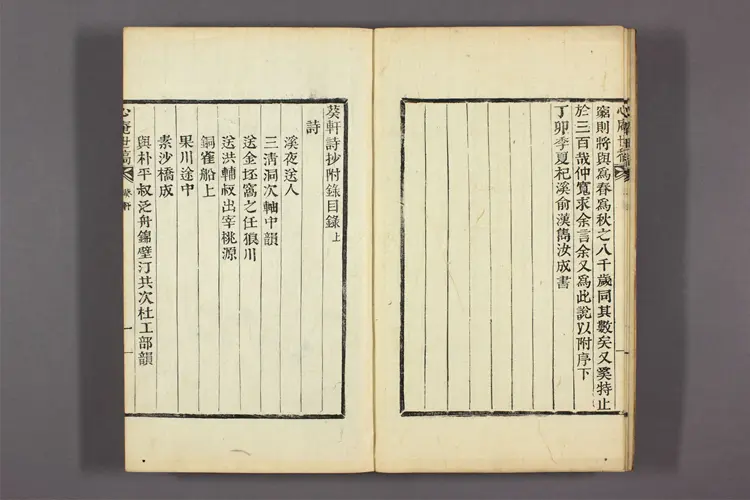 窮則將與爲春爲秋之八千歲同其數矣又奚特止
於三百哉仲寬求余言余又爲此說以附序下
丁卯季夏杞溪俞漢雋汝成書
葵軒詩抄附錄目錄上
詩
溪夜送人
三清洞次軸中韻
送金坯窩之任狼川
送洪輔叔出宰桃源
銅雀船上
果川途中
素沙橋成
與朴平叔泛舟錦壁汀共次杜工部韻
心庵世稿